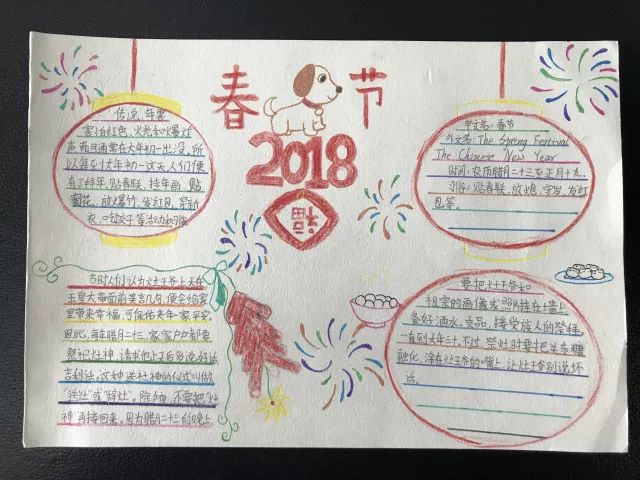 春节
2018
福
传说，年兽
害怕红色，火光和爆炸
声，而且通常在大年初一出没，所
以每到大年初一这天，人们便
有了拜年、贴春联、挂年画、贴
窗花、放爆竹、发红包、穿新
衣、吃饺子等活动和习俗
中文名：春节
外文名：The Spring Festival
The Chinese New Year
时间：农历腊月二十三至正月十九
习俗：贴春联、放炮、守岁、发红
包等。
古时人们认为灶王爷上天在
玉皇大帝面前美言几句，便会给家
里带来幸福，可保佑来年一家平安。
因此，每年腊月二十三，家家户户都要
祭祀灶神，请求他上天后多说好话
吉利话，这种送灶神的仪式叫做
"送灶"或"辞灶"。除夕晚，不要把"灶
神"再接回来。因为腊月二十三的晚上，
要把灶王爷和
祖宗的画像或照片挂在墙上，
备好酒水、贡品，接受族人的祭拜，
一直到大年三十。不过，祭灶时要把关东糖
融化，涂在灶王爷的嘴上，让灶王爷别说坏
话。